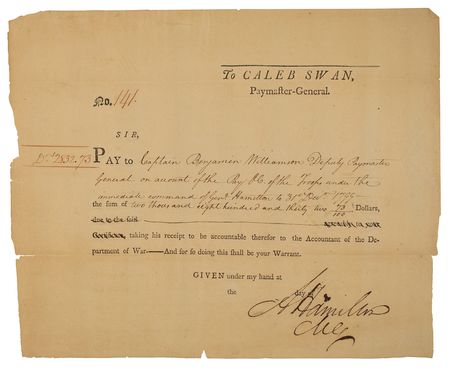 To CALEB SWAN,
Paymaster-General.
No. 141.
SIR,
Drs 2832.73
PAY to Captain Benjamin Williamson Deputy Paymaster
General on account of the Pay &c. of the Troops under the
immediate command of Genl Hamilton to 31st Decr 1799
the sum of two thousand eight hundred and thirty two 73/100 Dollars,
due to the said
taking his receipt to be accountable therefor to the Accountant of the De-
partment of War—And for so doing this shall be your Warrant.
GIVEN under my hand at
the day of
A Hamilton
MG